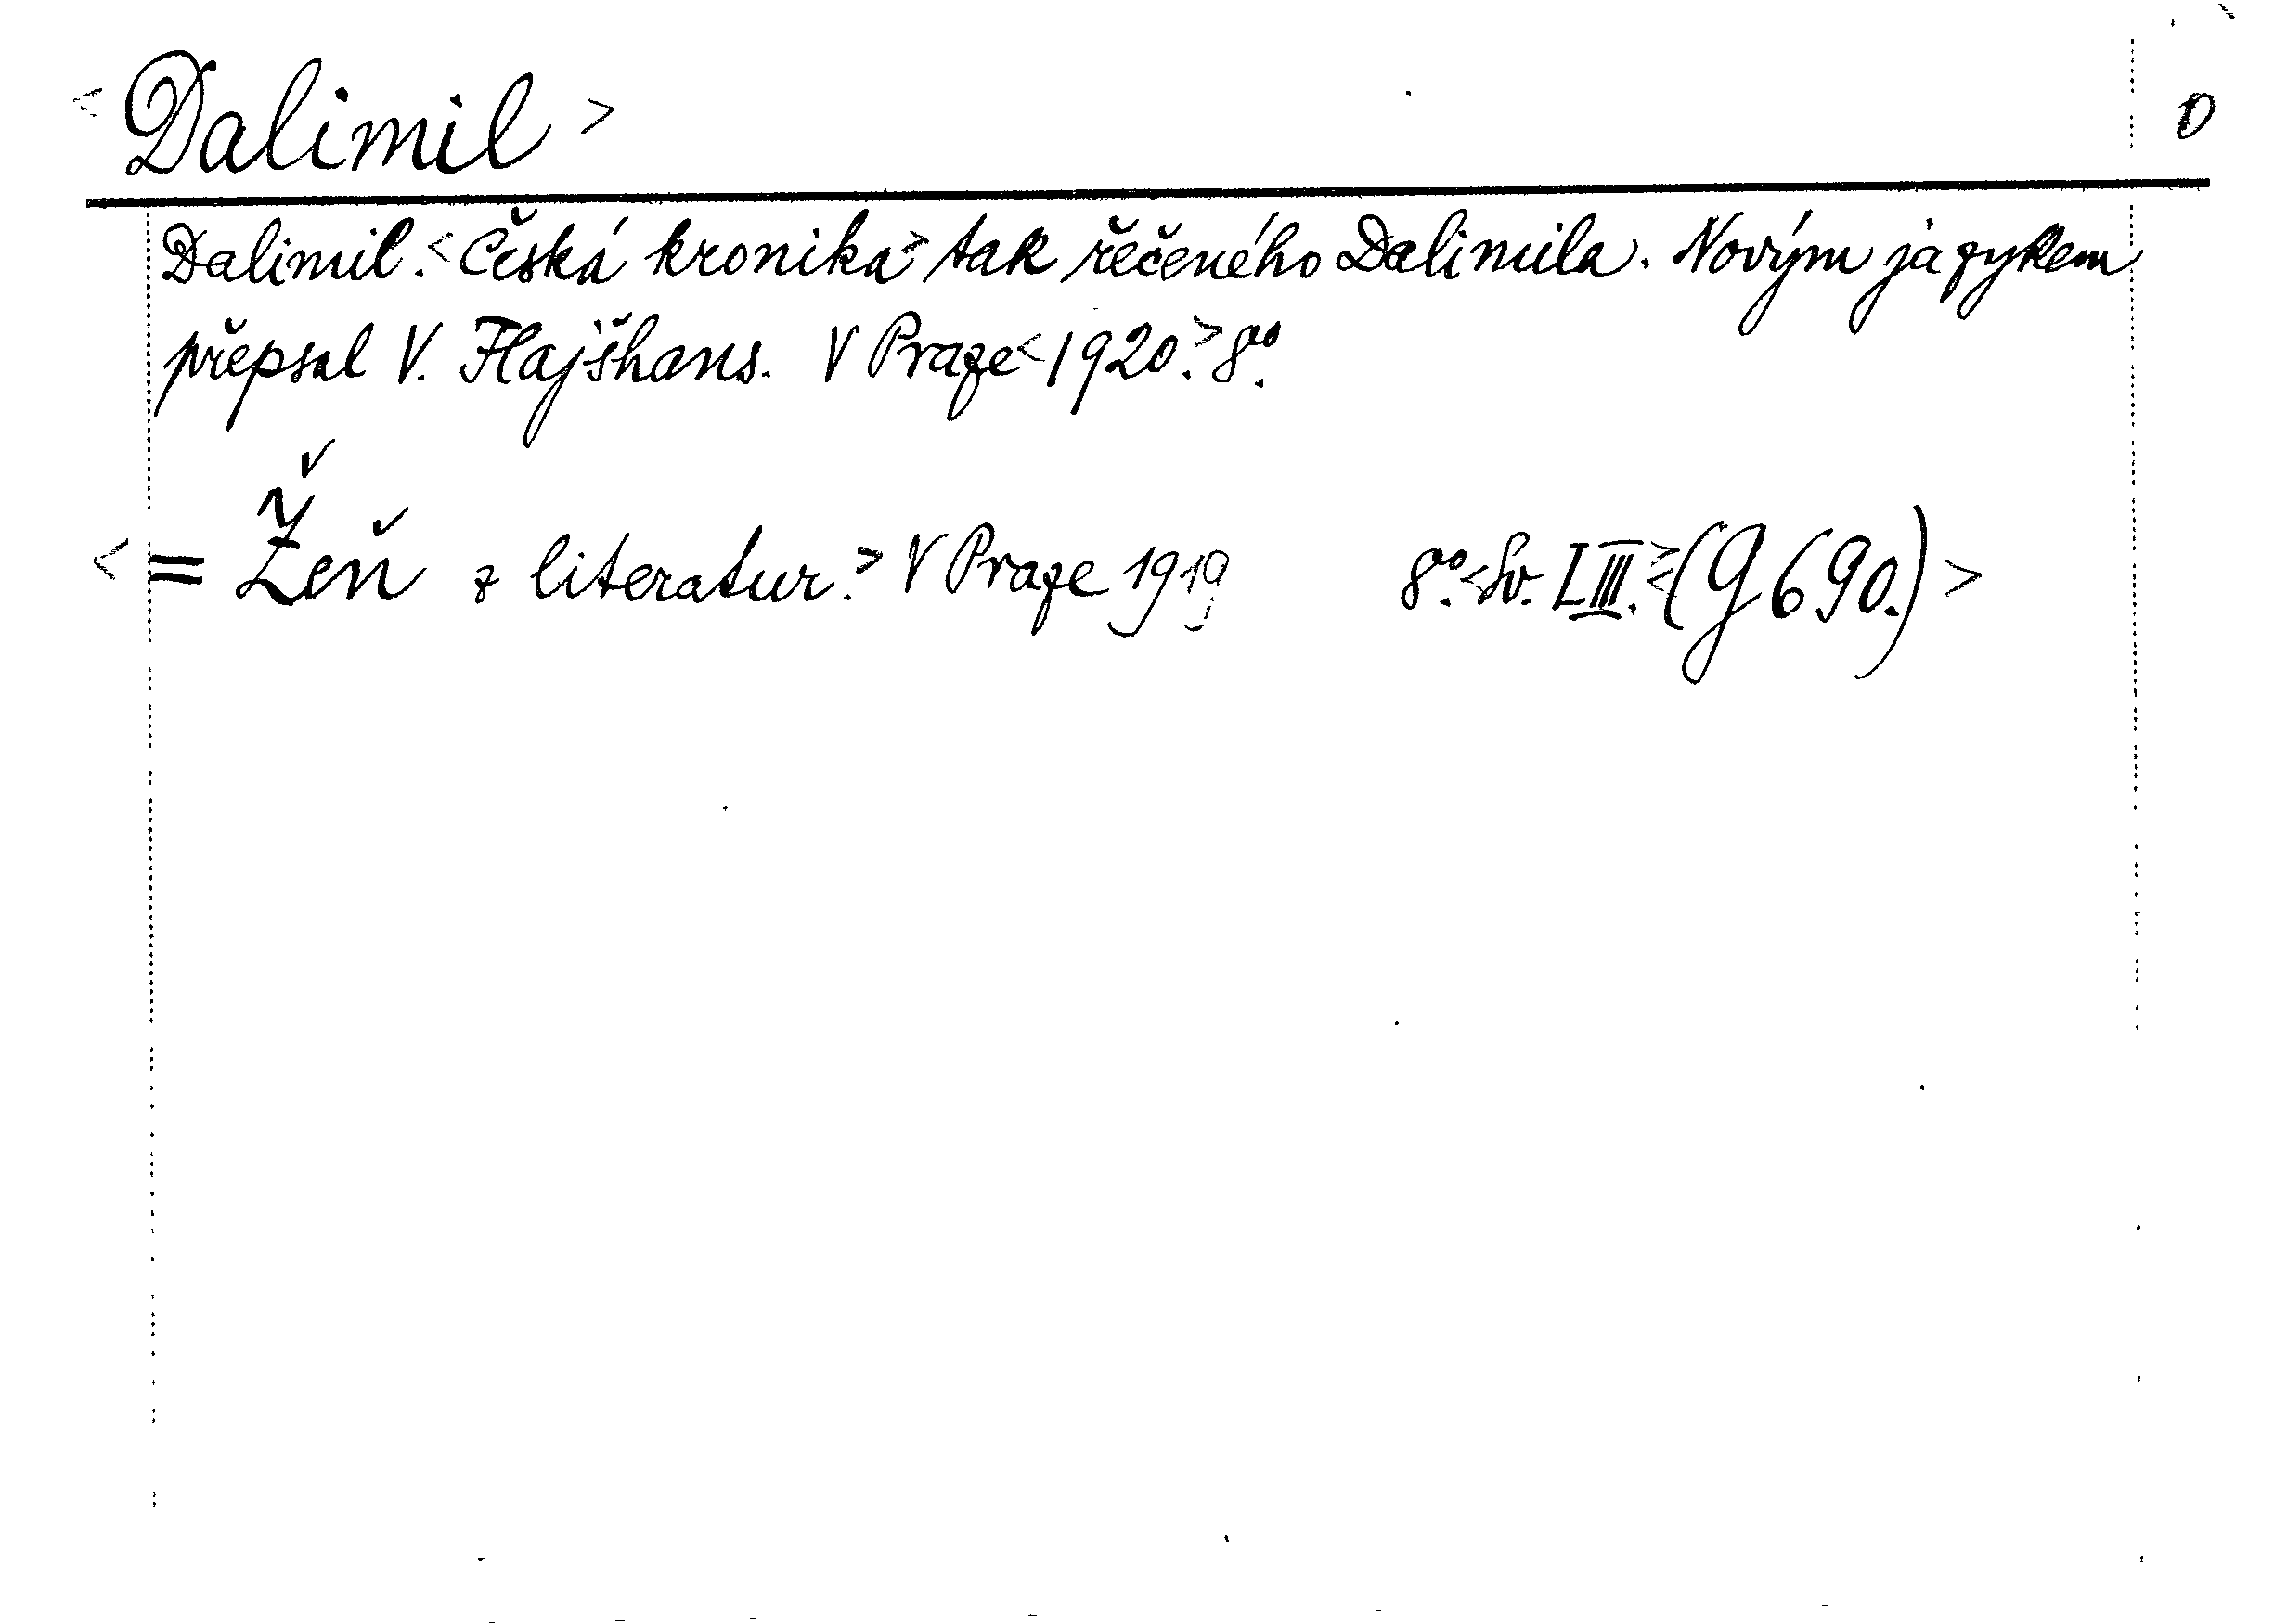 <Dalimil> D
Dalimil.<Česká kronika> tak řečeného Dalimila. Novým jazykem
přepsal V. Flajšhans. V Praze<1920.>8°.
<= Žeň z literatur.> V Praze 1919 8°.<Sv. LIII.><(G 690.)>